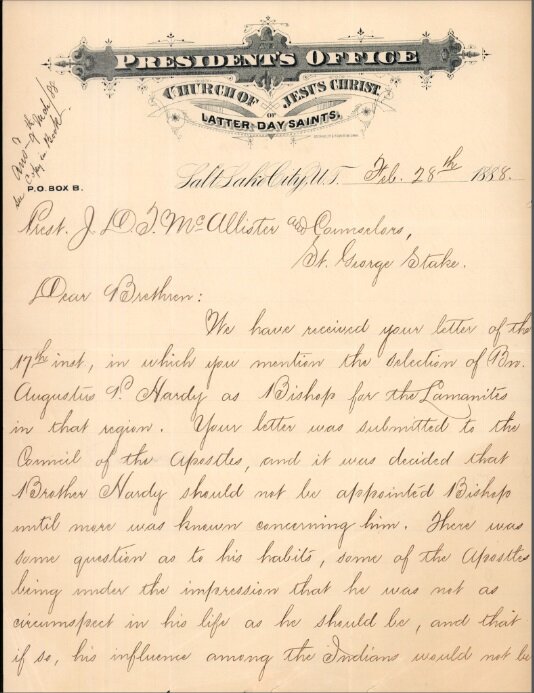 PRESIDENT'S OFFICE
CHURCH OF JESUS CHRIST
OF
LATTER-DAY SAINTS.
Ans'd 9th Mch/88
see Copy in Book
P.O. BOX B.
Salt Lake City, U.T. Feb. 28th 1888.
Prest. J. D. T. McAllister and Counselors,
St. George Stake.
Dear Brethren:
We have received your letter of the
17th inst., in which you mention the selection of Bro.
Augustus P. Hardy as Bishop for the Lamanites
in that region. Your letter was submitted to the
Council of the Apostles, and it was decided that
Brother Hardy should not be appointed Bishop
until more was known concerning him. There was
some question as to his habits, some of the Apostles
being under the impression that he was not as
circumspect in his life as he should be, and that
if so, his influence among the Indians would not be